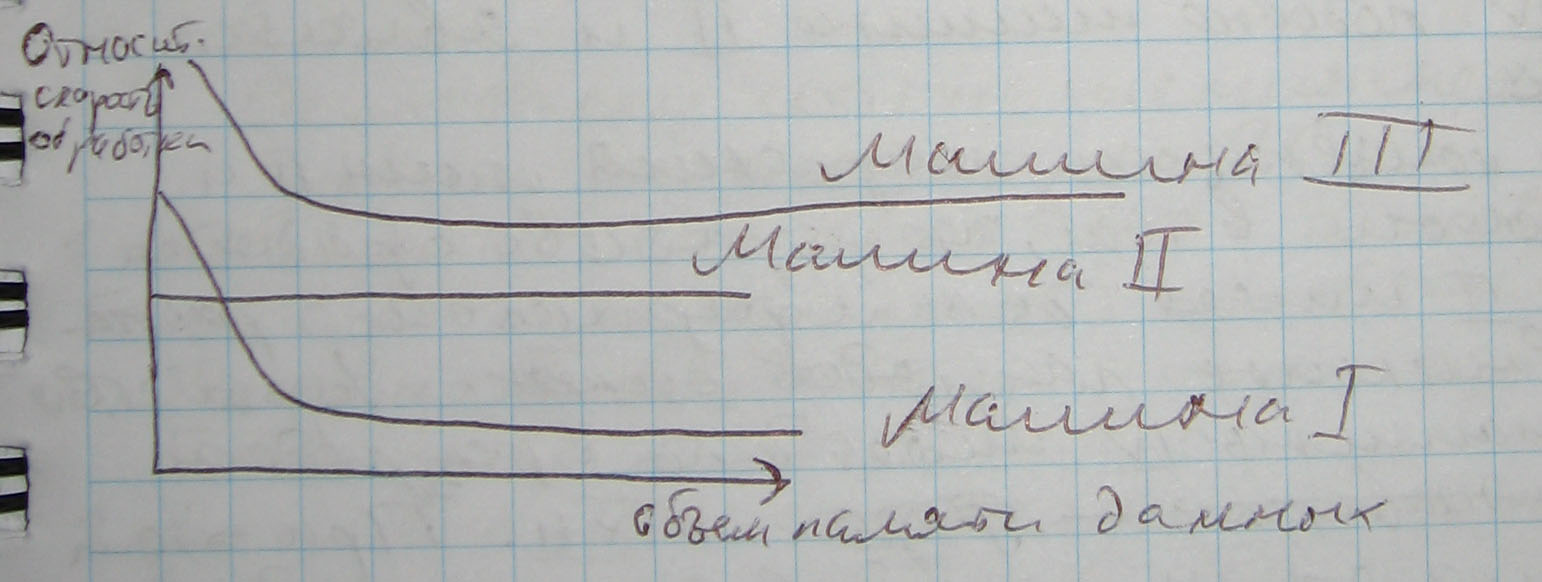 Относит.
скорость
обработки
Машина III
Машина II
Машина I
объем памяти данных